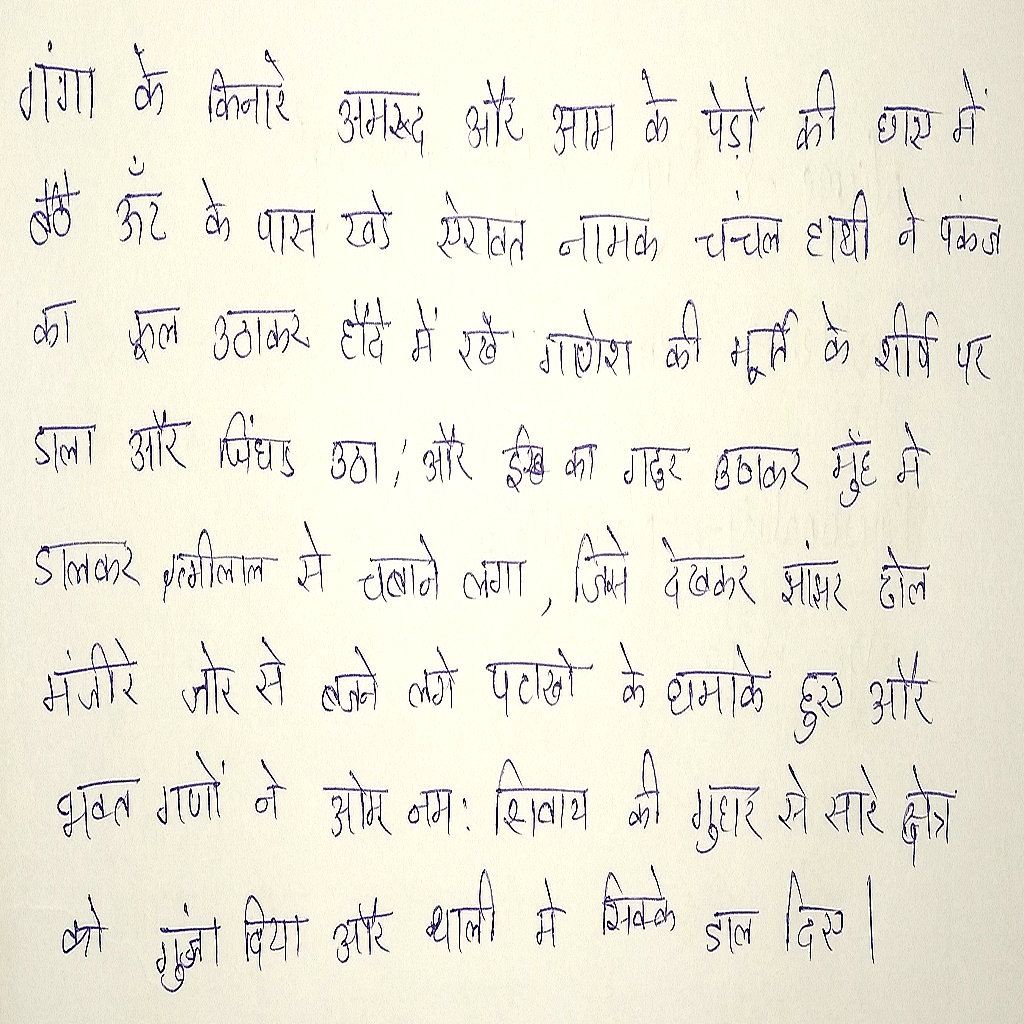 गंगा के किनारे अमरूद और आम के पेड़ो की छाए में
बैठे ऊँट के पास खडे ऐरावत नामक चंचल हाथी ने पंकज
का फूल उठाकर हौदे में रखे गणेश की मूर्ति के शीर्ष पर
डाला और चिंघाड उठा। और ईख का गट्ठर उठाकर मुँह मे
डालकर इत्मीलाल से चबाने लगा, जिसे देखकर झांझर ढोल
मंजीरे जोर से बजने लगे पटाखो के धमाके हुए और
भक्त गणों ने ओम नम: शिवाय की गुहार से सारे क्षेत्र
को गुंजा दिया और थाली मे सिक्के डाल दिए।